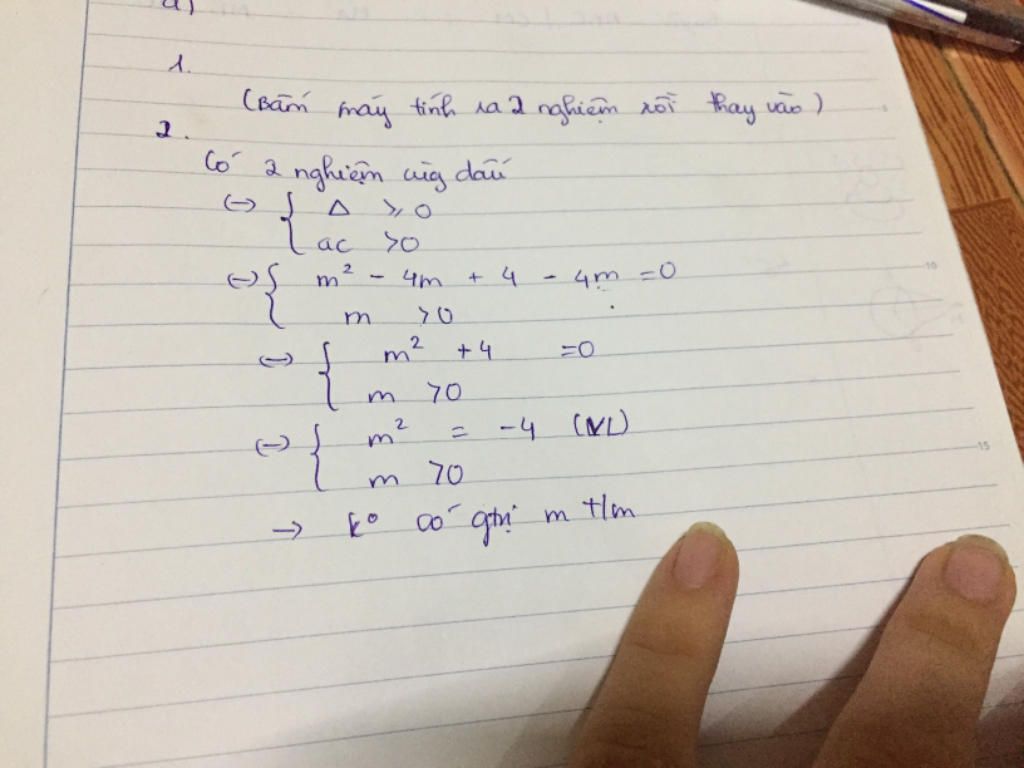 a)
1.
(Bấm máy tính ra 2 nghiệm rồi thay vào)
2.
Có 2 nghiệm cùg dấu
<-> { Δ ⩾ 0
ac >0
<-> { m² - 4m + 4 - 4m =0
m >0
<-> { m² +4 =0
m >0
<-> { m² = -4 (VL)
m >0
-> k° có gtrị m t/m
10
15